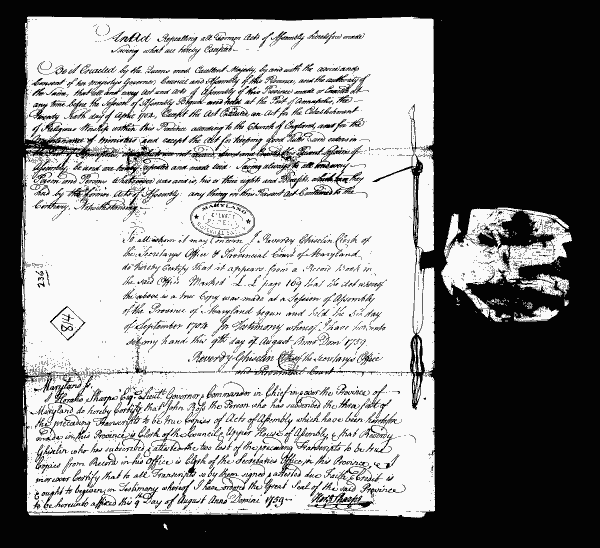 An Act Repealing all former Acts of Assembly heretofore made
Saving what are hereby Excepted
Be it Enacted by the Queens most Excellent Majesty by and with the advice and
Consent of her Majestys Governor, Council and Assembly of this Province, and the authority of
the Same, that all and every Act and Acts of Assembly of this Province made or Enacted at
any time before the Session of Assembly Begun and held at the Port of Annapolis, the
day of April 1704, Except the Act Entituled, an Act for the Establishment
of Religious Worship within this Province according to the Church of England, and for the
Maintenance of ministers and except the Act for keeping good Rules and orders in
Assembly be and are hereby repealed and made void Saving always to all and every
Person and Persons whatsoever was and is, his or their right and Benefits which he or they
had by the former Acts of Assembly any thing in this Present Act Contained to the
Contrary Notwithstanding
MARYLAND
To all whom it may concern I Reverdy Ghiselin Clerk of
the Secretarys Office & Provincial Court of Maryland
do hereby Certify that it appears from a Record Book in
the said Office Marked L.L. page 169 that the Act whereof
the above is a true Copy was made at a Session of Assembly
of the Province of Maryland begun and held the 5th day
of September 1704 In Testimony whereof I have hereunto
set my hand this 9th day of August Anno Domi 1759.
Reverdy Ghiselin Clk of the Secretarys Office
and Provincial Court
236
814
Maryland ss.
I Horatio Sharpe Esqr. Lieutt. Governor & Commander in Chief in & over the Province of
Maryland do hereby Certify that John Ross the Person who has subscribed the three first of
the preceding Transcripts to be true Copies of Acts of Assembly which have been heretofore
made in this Province is Clerk of the Council & Upper House of Assembly, & that Reverdy
Ghiselin who has subscribed & attested the two last of the preceding Transcripts to be true
Copies from Record in his Office is Clerk of the Secretaries Office in this Province, & I
moreover Certify that to all Transcripts so by them signed & attested due Faith & Credit is
& ought to be given, in Testimony whereof I have ordered the Great Seal of the said Province
to be hereunto affixed this 9th Day of August Anno Domini 1759
Horo. Sharpe